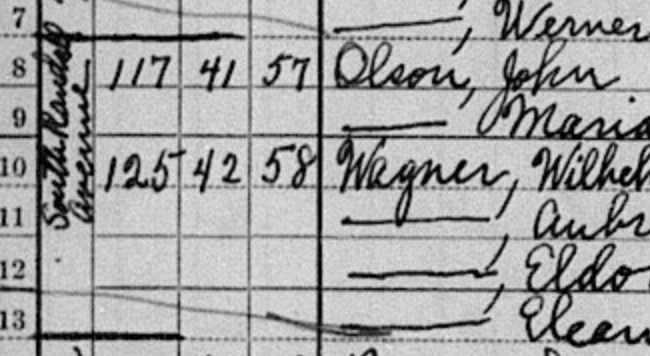 7 ———, Werner
8 117 41 57 Olson, John
9 ——— Maria
10 125 42 58 Wagner, Wilhel
11 ———, Aubr
12 ———, Eldo
13 ———, Elean
South Randall Avenue